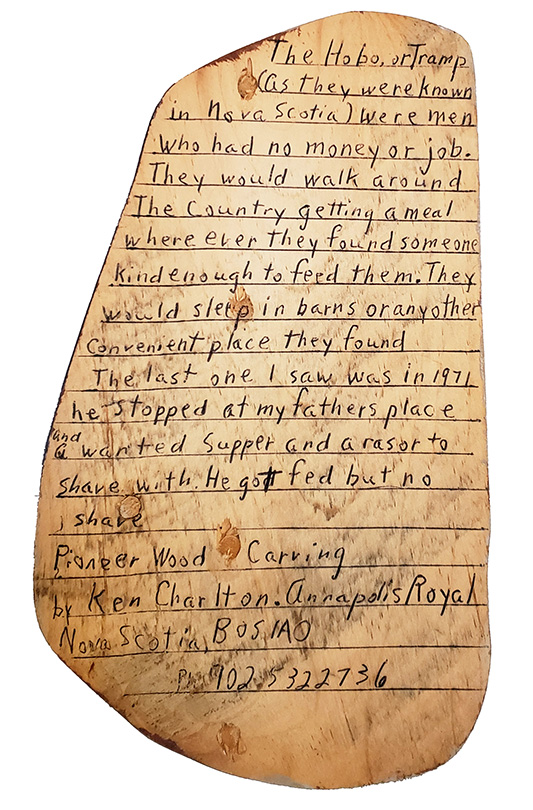 The Hobo, or Tramp
(As they were known
in Nova Scotia) were men
who had no money or job.
They would walk around
The Country getting a meal
where ever they found someone
kind enough to feed them. They
would sleep in barns or any other
convenient place they found
The last one I saw was in 1971
he stopped at my fathers place
and
a wanted supper and a rasor to
shave with. He gott fed but no
shave
Pioneer Wood Carving
by Ken Charlton. Annapolis Royal
Nova Scotia, BOS1AO
Ph 902 5322736